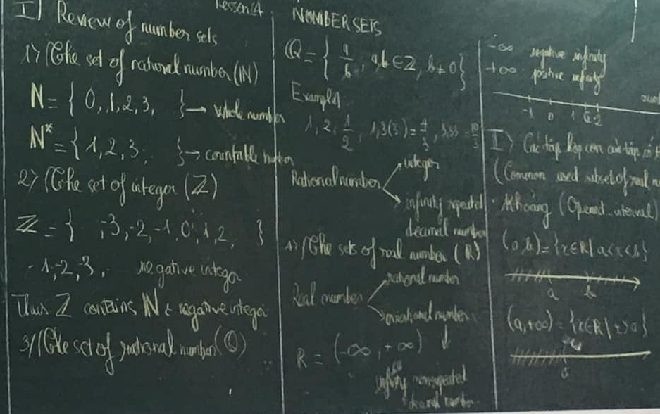 Lesson 4 NUMBER SETS
I) Review of number sets
1) The set of national number (N)
N = { 0, 1, 2, 3, } → whole number
N* = { 1, 2, 3, } → countable number
2) The set of integer (Z)
Z = { , -3, -2, -1, 0, 1, 2, }
-1, -2, -3, negative integer
Thus Z contains N & negative integer
3) The set of rational number (Q)
Q = { a/b, a,b ∈ Z, b ≠ 0 }
Example
1, 2, 1/2, 1,3(3) = 4/3
Rational number
integer
infinity repeated
decimal number
4) The sets of real number (R)
Real number
rational number
irrational number
R = (-∞, +∞)
infinity nonrepeated
decimal number
-∞ negative infinity
+∞ positive infinity
-1 0 1 √2
I) Các tập hợp con của tập số
(Common used subset of real
Khoảng (Opened interval)
(a, b) = {x ∈ R | a < x < b}
a b
(a, +∞) = {x ∈ R | x > a}
a